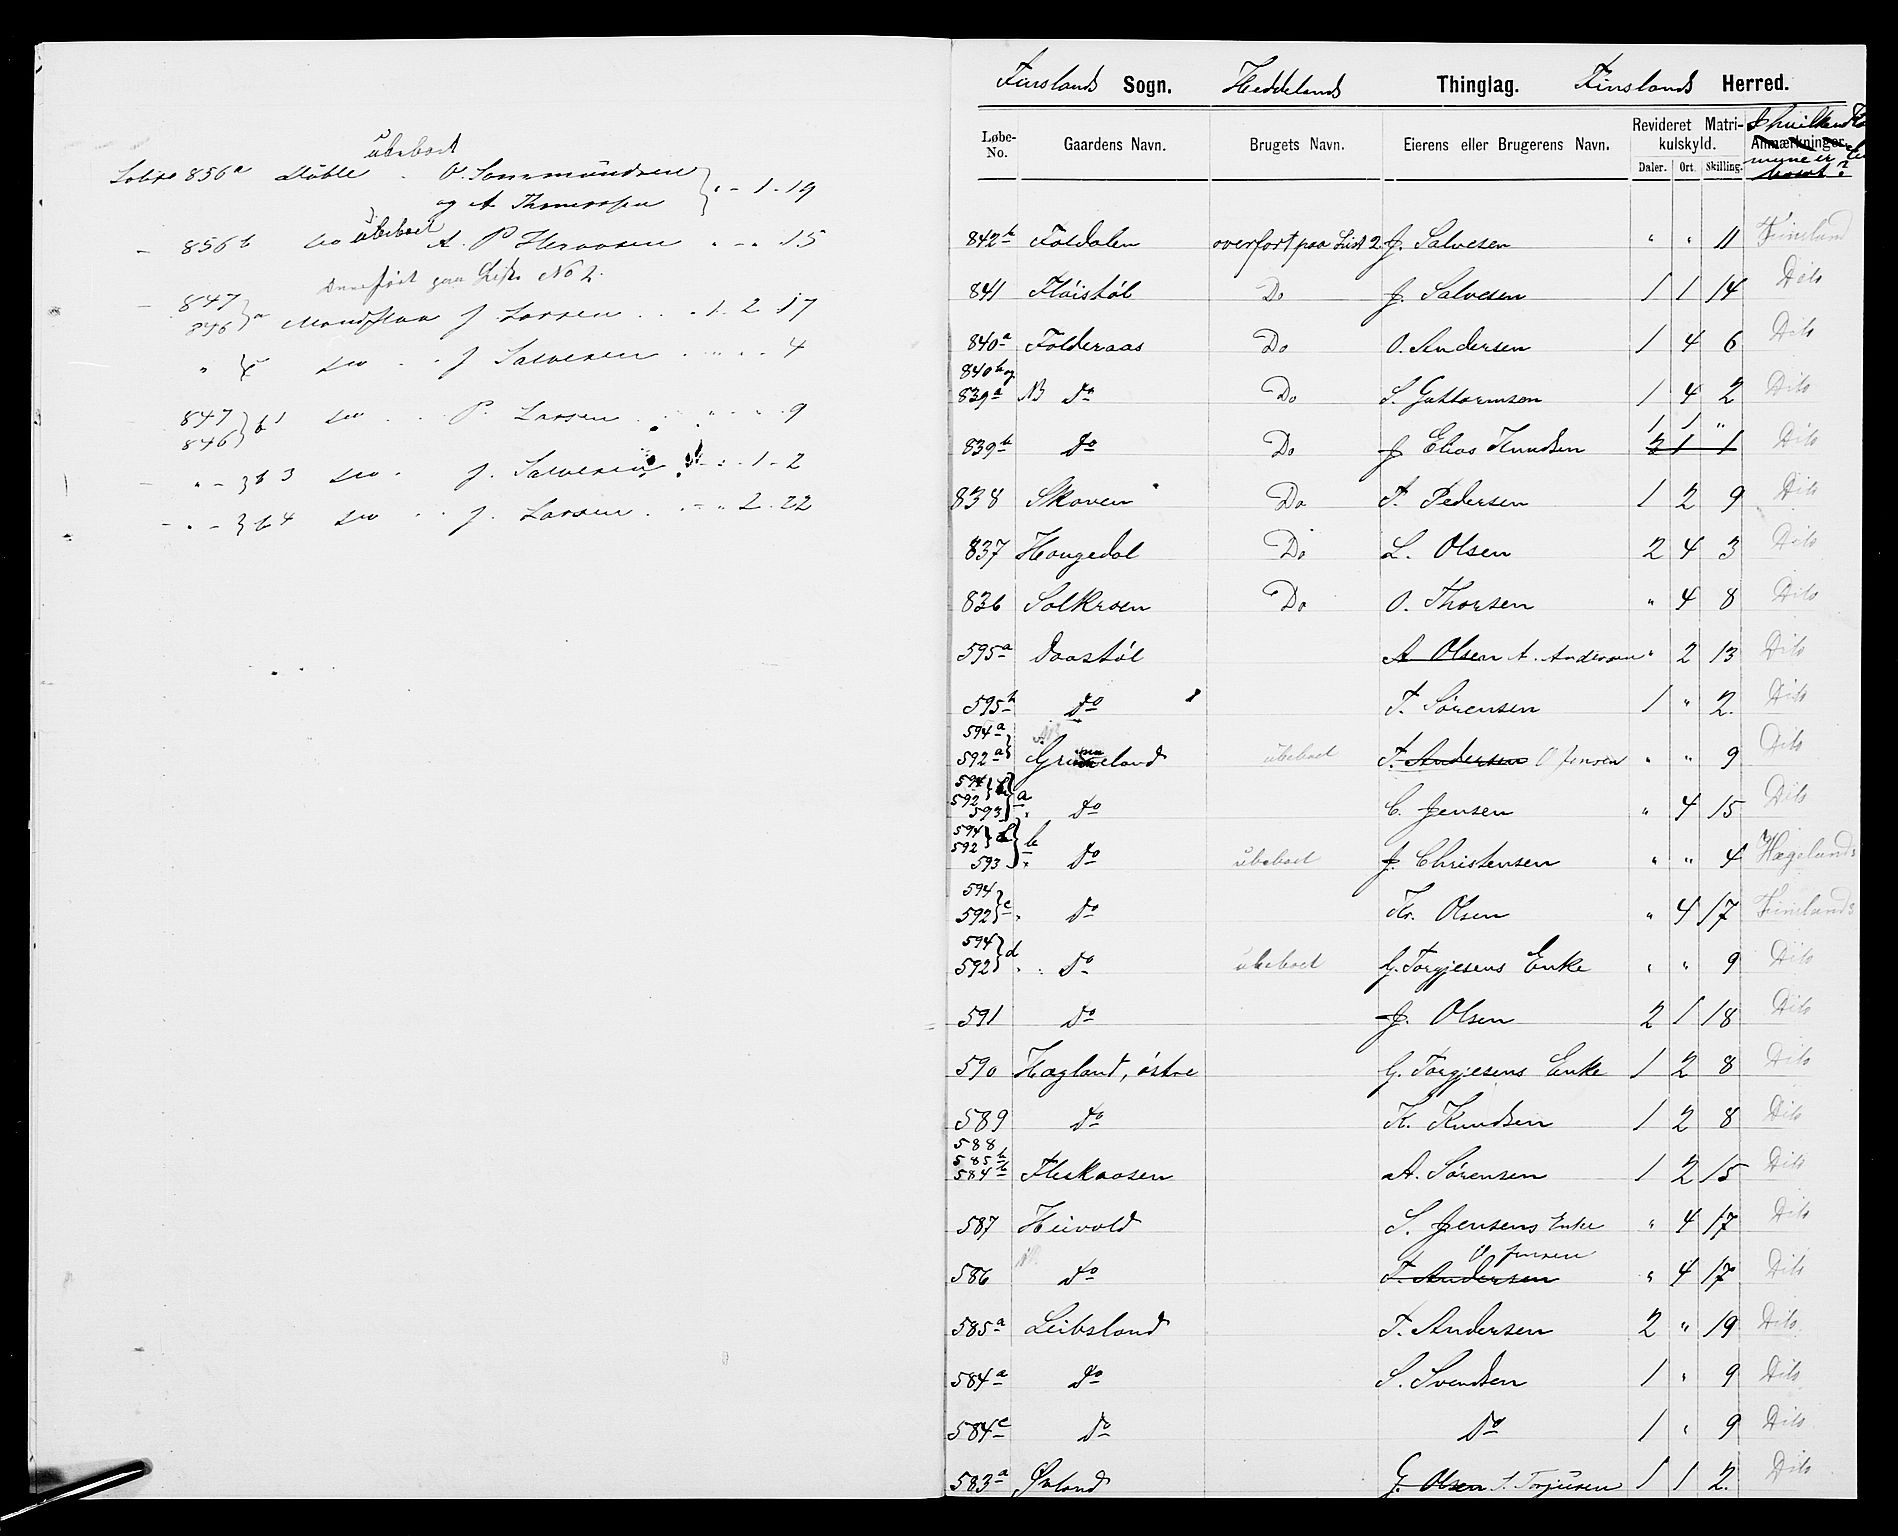 ubeboet
Løbno 856a Støble . O. Sommundsen
og A Thomassen } " - 1 - 19
- 856b do ubeboet A. P Heraasen " - " 15
Overført paa Liste No 2.
- 847
846 } a Mandflaa J. Larsen . . . 1. 2 17
" } c do . J Salvesen . " . . 4
847
846 } b 1 do . . P. Larsen . . " . " . 9
- " - } b 3 do . J. Salvesen . . . 1 - 2
- " - } b 4 do . . J. Larsen . . - " 2. 22
Finslands Sogn. Heddelands Thinglag. Finslands Herred.
Løbe-No. Gaardens Navn. Brugets Navn. Eierens eller Brugerens Navn. Revideret Matrikulskyld. Anmærkninger.
Daler. Ort. Skilling.
842b Foldalen overført paa List 2 J. Salvesen " " 11 Finsland
841 Fløistøl Do J. Salvesen 1 1 14 Dito
840a Folderaas Do O. Andersen 1 4 6 Dito
840b og
839a NB Do Do S. Guttormsen 1 4 2 Dito
1 1 "
839b Do Do J Elias Knudsen 2 1 1 Dito
838 Skoven Do T. Pedersen 1 2 9 Dito
837 Hougedal Do L. Olsen 2 4 3 Dito
836 Solkroen Do O. Thorsen " 4 8 Dito
595a Daastøl A Olsen A. Andersen " 2 13 Dito
595b Do T. Sørensen 1 " 2. Dito
594a
592a } Grundeland ubeboet T. Andersen O Jensen " " 9 Dito
594
592 } b
593 } a Do C. Jensen " 4 15 Dito
594
592 } b
593 } b Do ubeboet J. Christensen " " 4 Hægelands
594
592 } c " Do Kr. Olsen " 4 17 Finslands
594
592 } d " Do ubeboet G. Torgjesens Enke " " 9 Dito
591 Do J. Olsen 2 1 18 Dito
590 Hægland, østre G. Torgjesens Enke 1 2 8 Dito
589 Do K. Knudsen 1 2 8 Dito
588
585b
584b Fleskaasen A. Sørensen 1 2 15 Dito
587 Heivold S. Jensens Enke " 4 17 Dito
O Jensen
586 Do T. Andersen " 4 17 Dito
585a Leibsland T. Andersen 2 " 19 Dito
584a Do S. Svendsen 1 " 9 Dito
584c Do Do 1 " 9 Dito
583a Øvland G. Olsen S. Torjusen 1 1 2. Dito